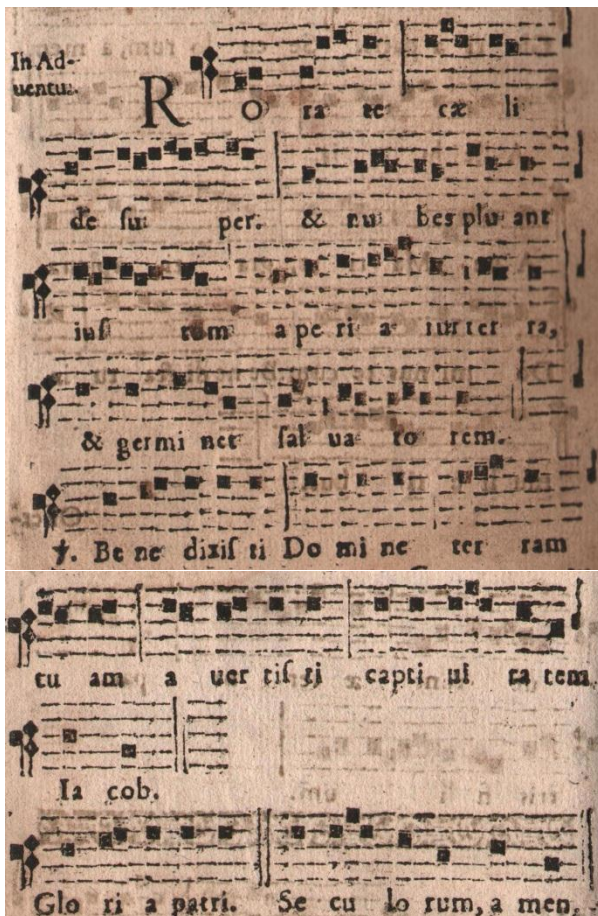 In Ad-
uentu.
RO ra te cæ li
de su per. & nu bes plu ant
iust tum a pe ri a tur ter ra,
& germi net sal ua to rem.
℣. Be ne dixis ti Do mi ne ter ram
tu am a uer tis ti capti ui ta tem
Ia cob.
Glo ri a patri. Se cu lo rum, a men,